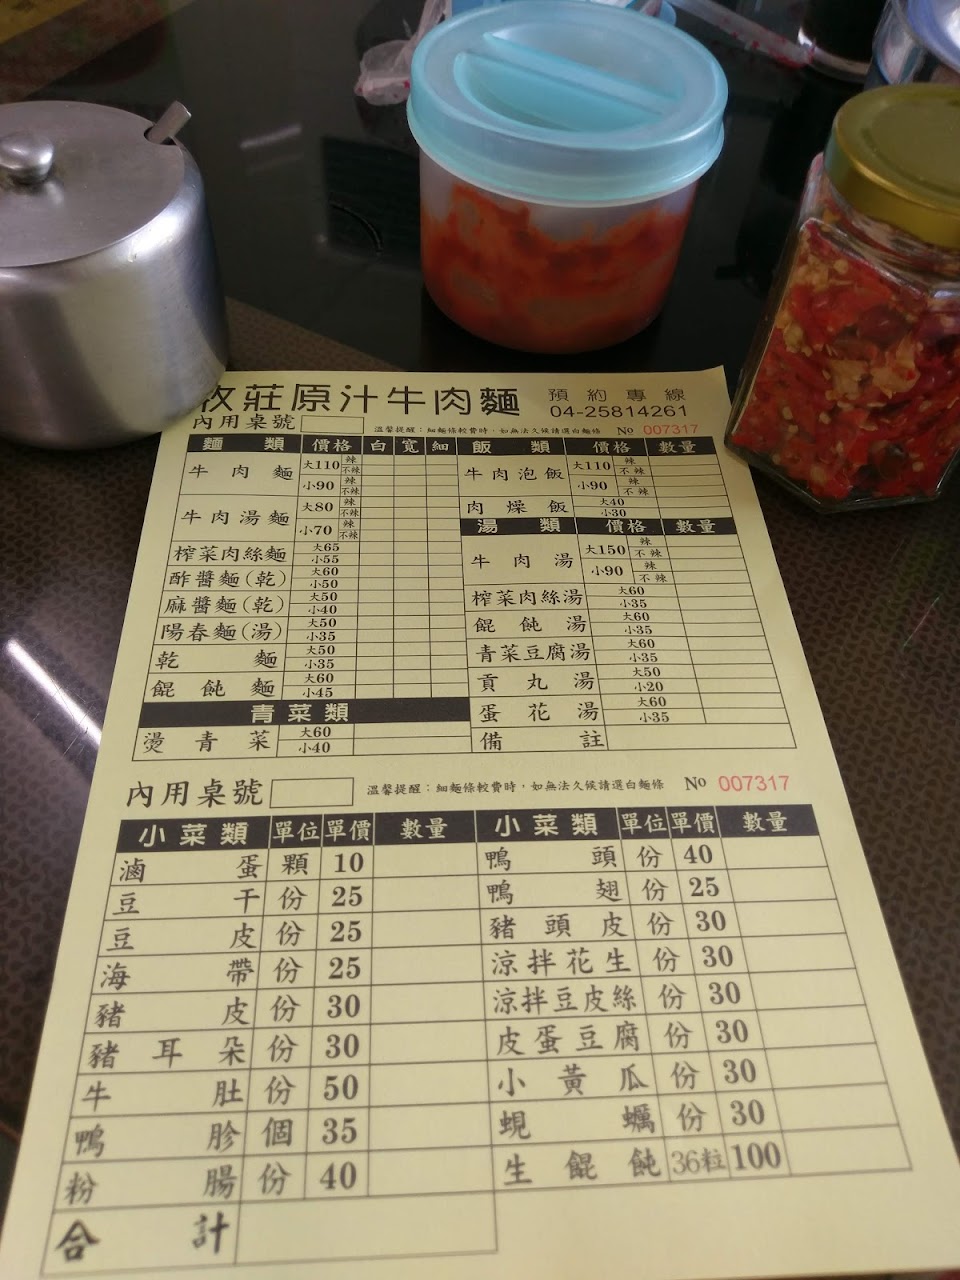 莊原汁牛肉麵 預約專線
04-25814261
內用桌號 溫馨提醒：細麵條較費時，如無法久候請選白麵條 No 007317
麵類 價格 白 寬 細
牛肉麵 大110 辣 不辣
小90 辣 不辣
牛肉湯麵 大80 辣 不辣
小70 辣 不辣
榨菜肉絲麵 大65 小55
酢醬麵(乾) 大60 小50
麻醬麵(乾) 大50 小40
陽春麵(湯) 大50 小35
乾麵 大50 小35
餛飩麵 大60 小45
青菜類
燙青菜 大60 小40
飯類 價格 數量
牛肉泡飯 大110 辣 不辣
小90 辣 不辣
肉燥飯 大40 小30
湯類 價格 數量
牛肉湯 大150 辣 不辣
小90 辣 不辣
榨菜肉絲湯 大60 小35
餛飩湯 大60 小35
青菜豆腐湯 大60 小35
貢丸湯 大50 小20
蛋花湯 大60 小35
備註
內用桌號 溫馨提醒：細麵條較費時，如無法久候請選白麵條 No 007317
小菜類 單位 單價 數量
滷蛋 顆 10
豆干 份 25
豆皮 份 25
海帶 份 25
豬皮 份 30
豬耳朵 份 30
牛肚 份 50
鴨胗 個 35
粉腸 份 40
合計
小菜類 單位 單價 數量
鴨頭 份 40
鴨翅 份 25
豬頭皮 份 30
涼拌花生 份 30
涼拌豆皮絲 份 30
皮蛋豆腐 份 30
小黃瓜 份 30
蜆蠣 份 30
生餛飩 36粒 100